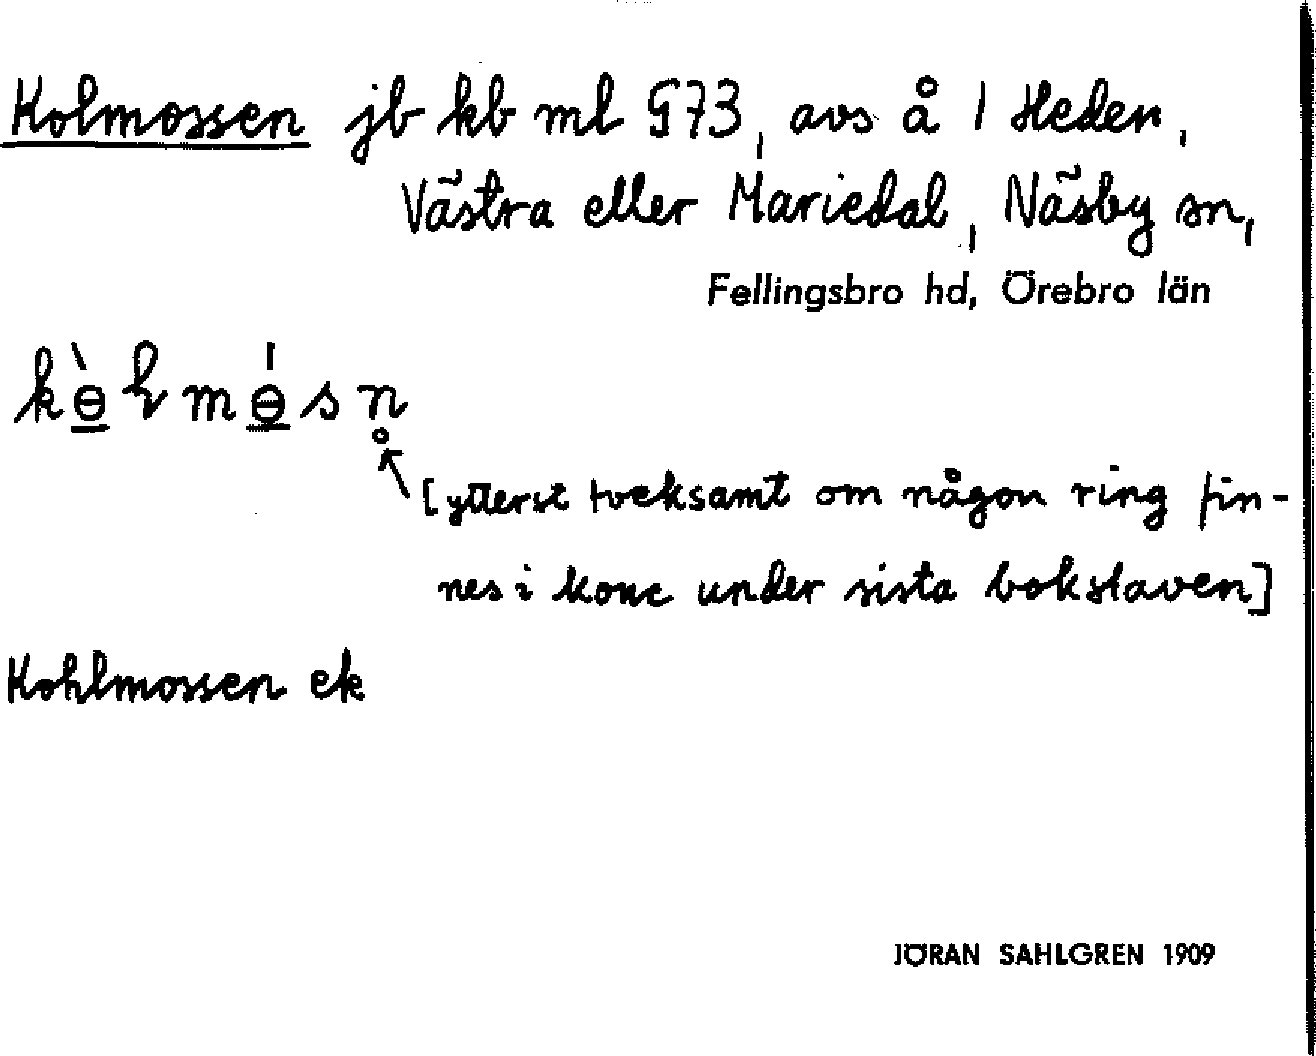 Kolmossen jb kb ml G73, avs å 1 Heden,
Västra eller Mariedal, Näsby sn,
Fellingsbro hd, Örebro län
kɵ̀lmɵ́sn̥
[ytterst tveksamt om någon ring fin-
nes i konc under sista bokstaven]
Kohlmossen ek
JÖRAN SAHLGREN 1909